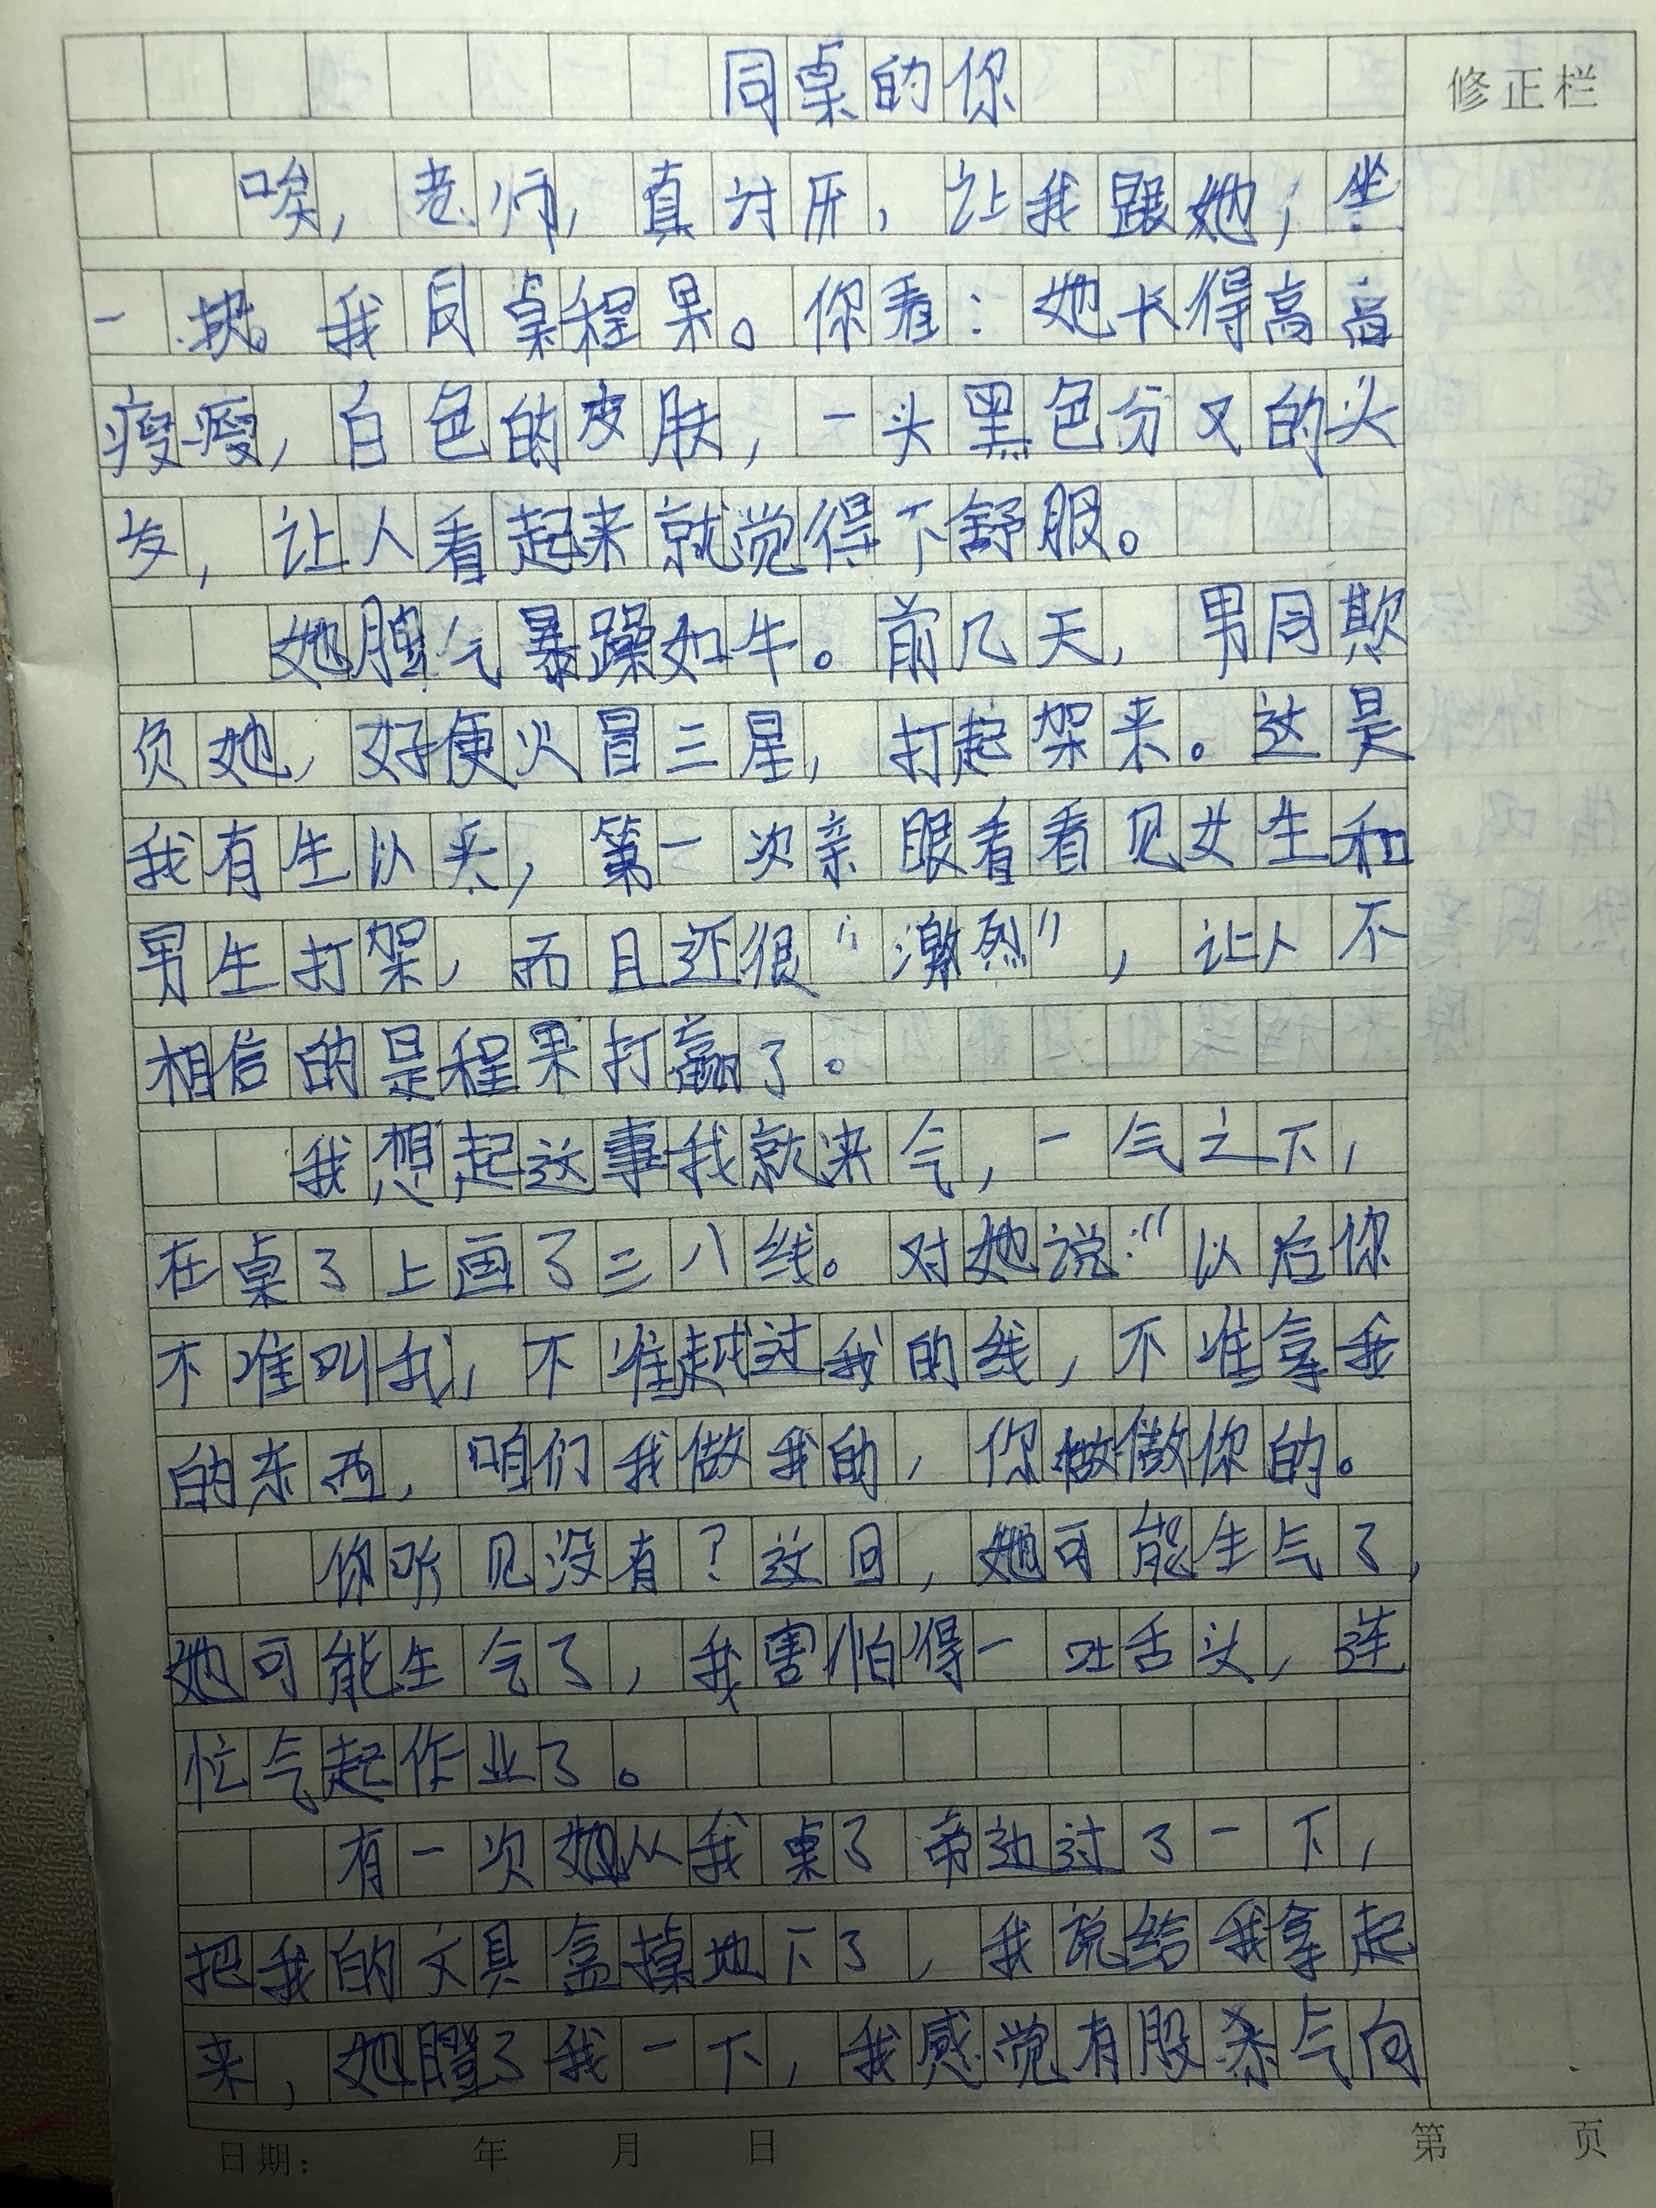 同桌的你
修正栏
唉，老师，真讨厌，让我跟她，坐
一块。我同桌程果。你看：她长得高高
瘦瘦，白色的皮肤，一头黑色分叉的头
发，让人看起来就觉得不舒服。
她脾气暴躁如牛。前几天，男同欺
负她，好便火冒三星，打起架来。这是
我有生以来，第一次亲眼看看见女生和
男生打架，而且还很“激烈”，让人不
相信的是程果打赢了。
我想起这事我就来气，一气之下，
在桌了上画了三八线。对她说：“以后你
不准叫我，不准越过我的线，不准拿我
的东西，咱们我做我的，你做做你的。
你听见没有？这回，她可能生气了，
她可能生气了，我害怕得一吐舌头，连
忙气起作业了。
有一次她从我桌了旁边过了一下，
把我的文具盒掉地下了，我说给我拿起
来，她瞪了我一下，我感觉有股杀气向
日期： 年 月 日 第 页